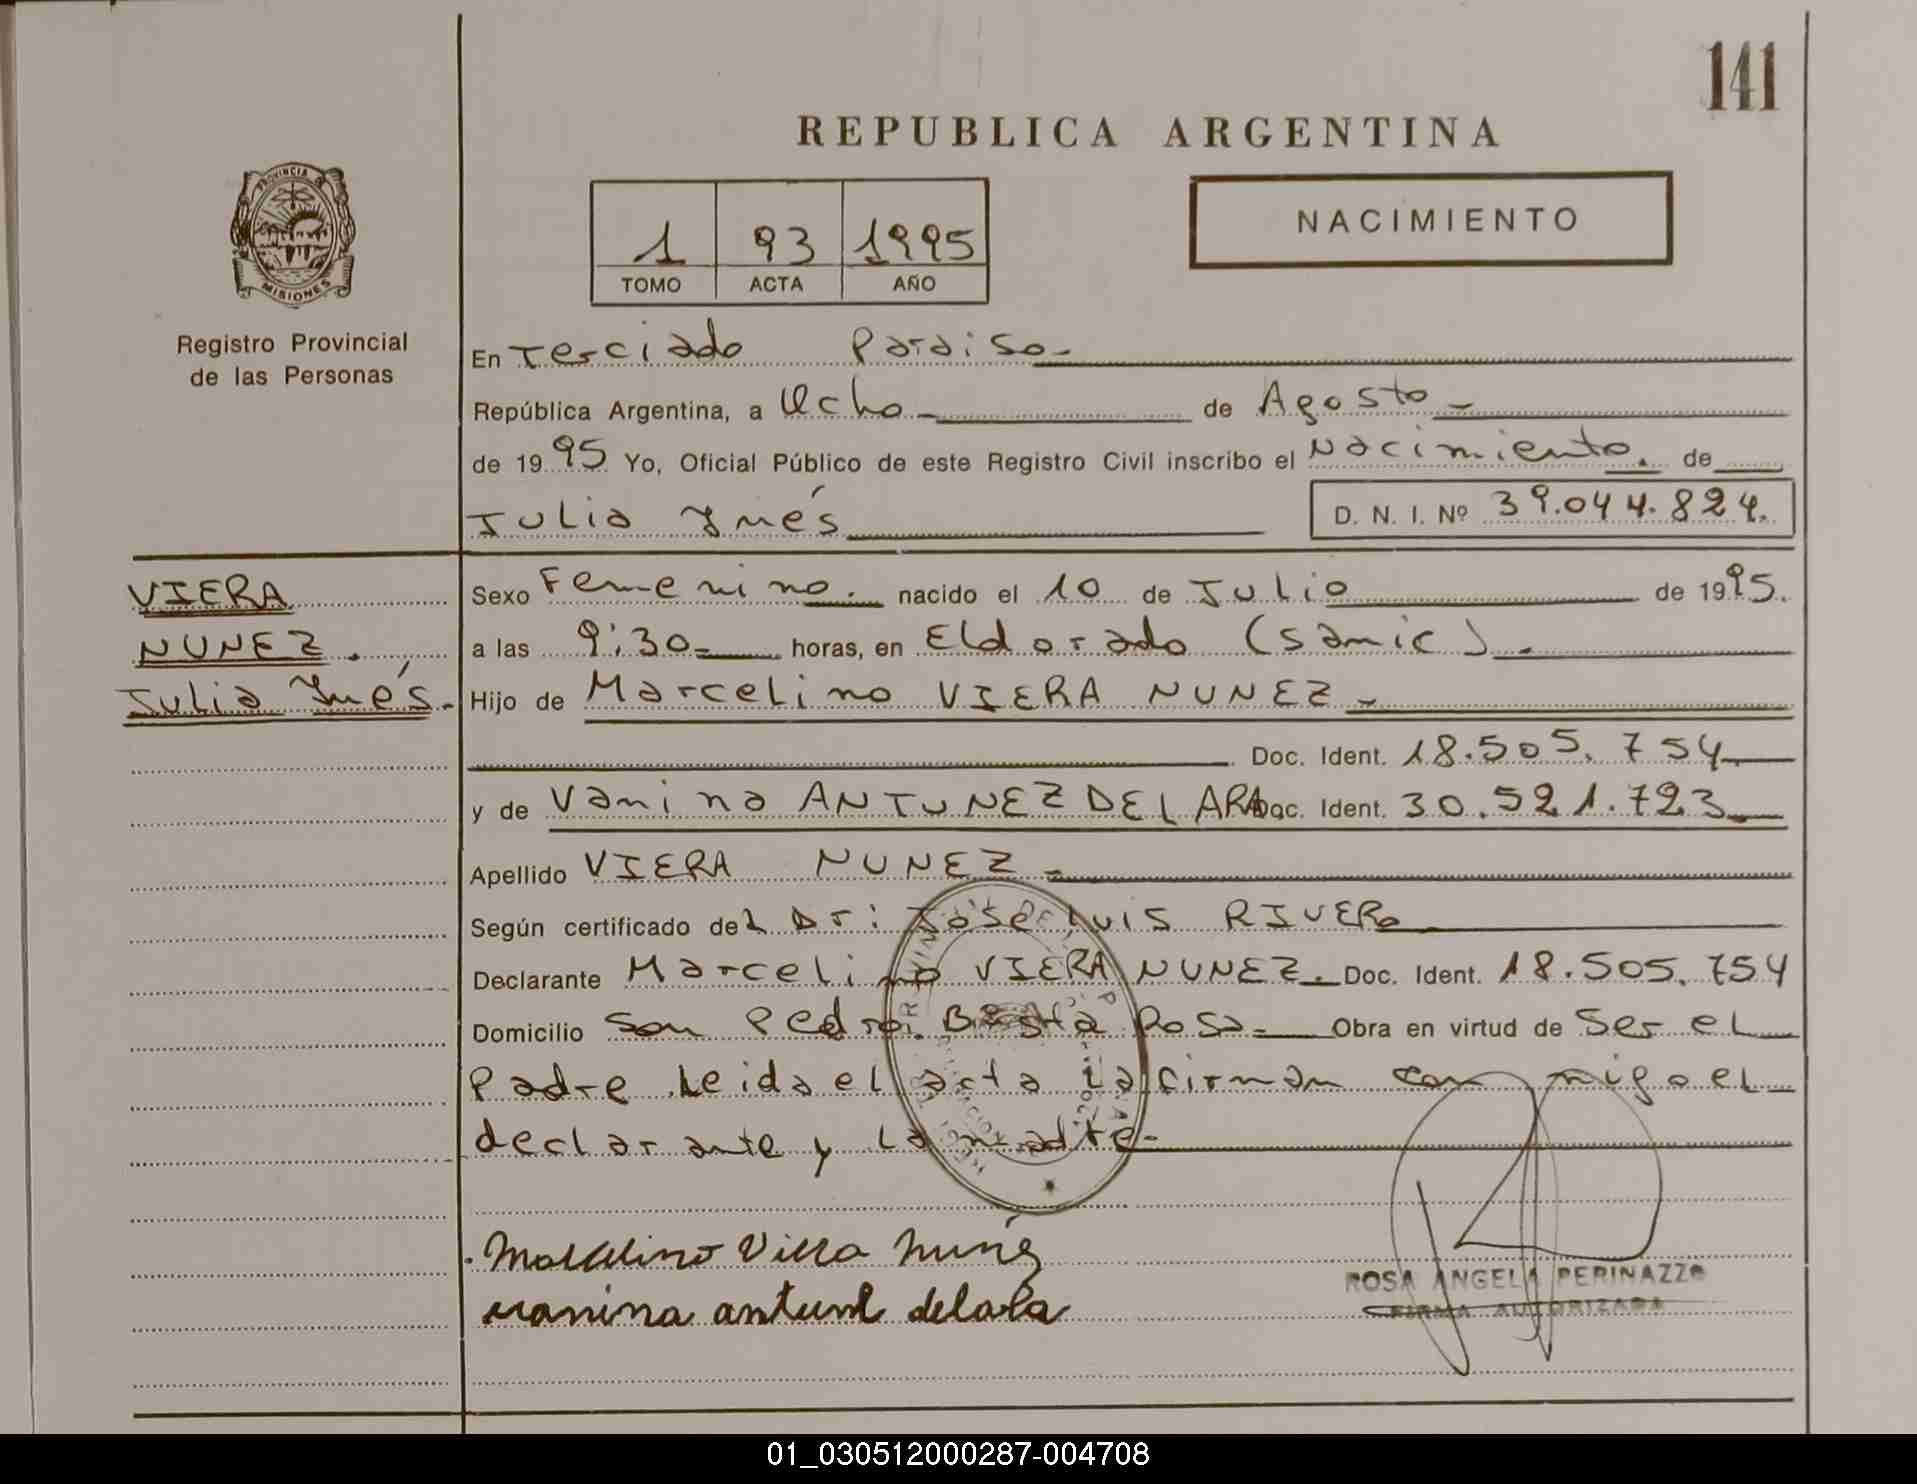 141
REPUBLICA ARGENTINA
NACIMIENTO
1 93 1995
TOMO ACTA AÑO
PROVINCIA DE
MISIONES
Registro Provincial
de las Personas
En Terciado Paraiso-
República Argentina, a Ocho- de Agosto-
de 1995 Yo, Oficial Público de este Registro Civil inscribo el Nacimiento. de
Julia Ynés D. N. I. Nº 39.044.824.
VIERA
NUNEZ.
Julia Ynés.-
Sexo Femenino. nacido el 10 de Julio de 1995.
a las 9:30= horas, en Eldorado (samic).
Hijo de Marcelino VIERA NUNEZ-
Doc. Ident. 18.505.754
y de Vanina ANTUNEZ DEL ARA Doc. Ident. 30.521.723
Apellido VIERA NUNEZ=
Según certificado del Dr: Jose Luis RIVERo
Declarante Marcelino VIERA NUNEZ. Doc. Ident. 18.505.754
Domicilio San Pedro. Rosa= Obra en virtud de Ser el
Padre Leida el acta la firman con migo el
declarante y La madre-
Marcelino Viera Nuñéz
vanina antunl delara
ROSA ANGELA PERINAZZO
FIRMA AUTORIZADA
01_030512000287-004708